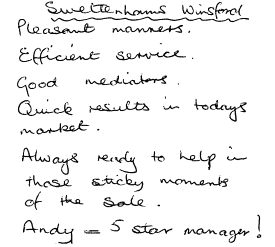 Swettenhams Winsford
Pleasant manners.
Efficient service.
Good mediators.
Quick results in todays
market.
Always ready to help in
those sticky moments
of the sale.
Andy = 5 star manager!